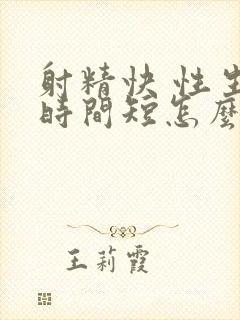 射精快 性生
時間短怎麼
王莉霞